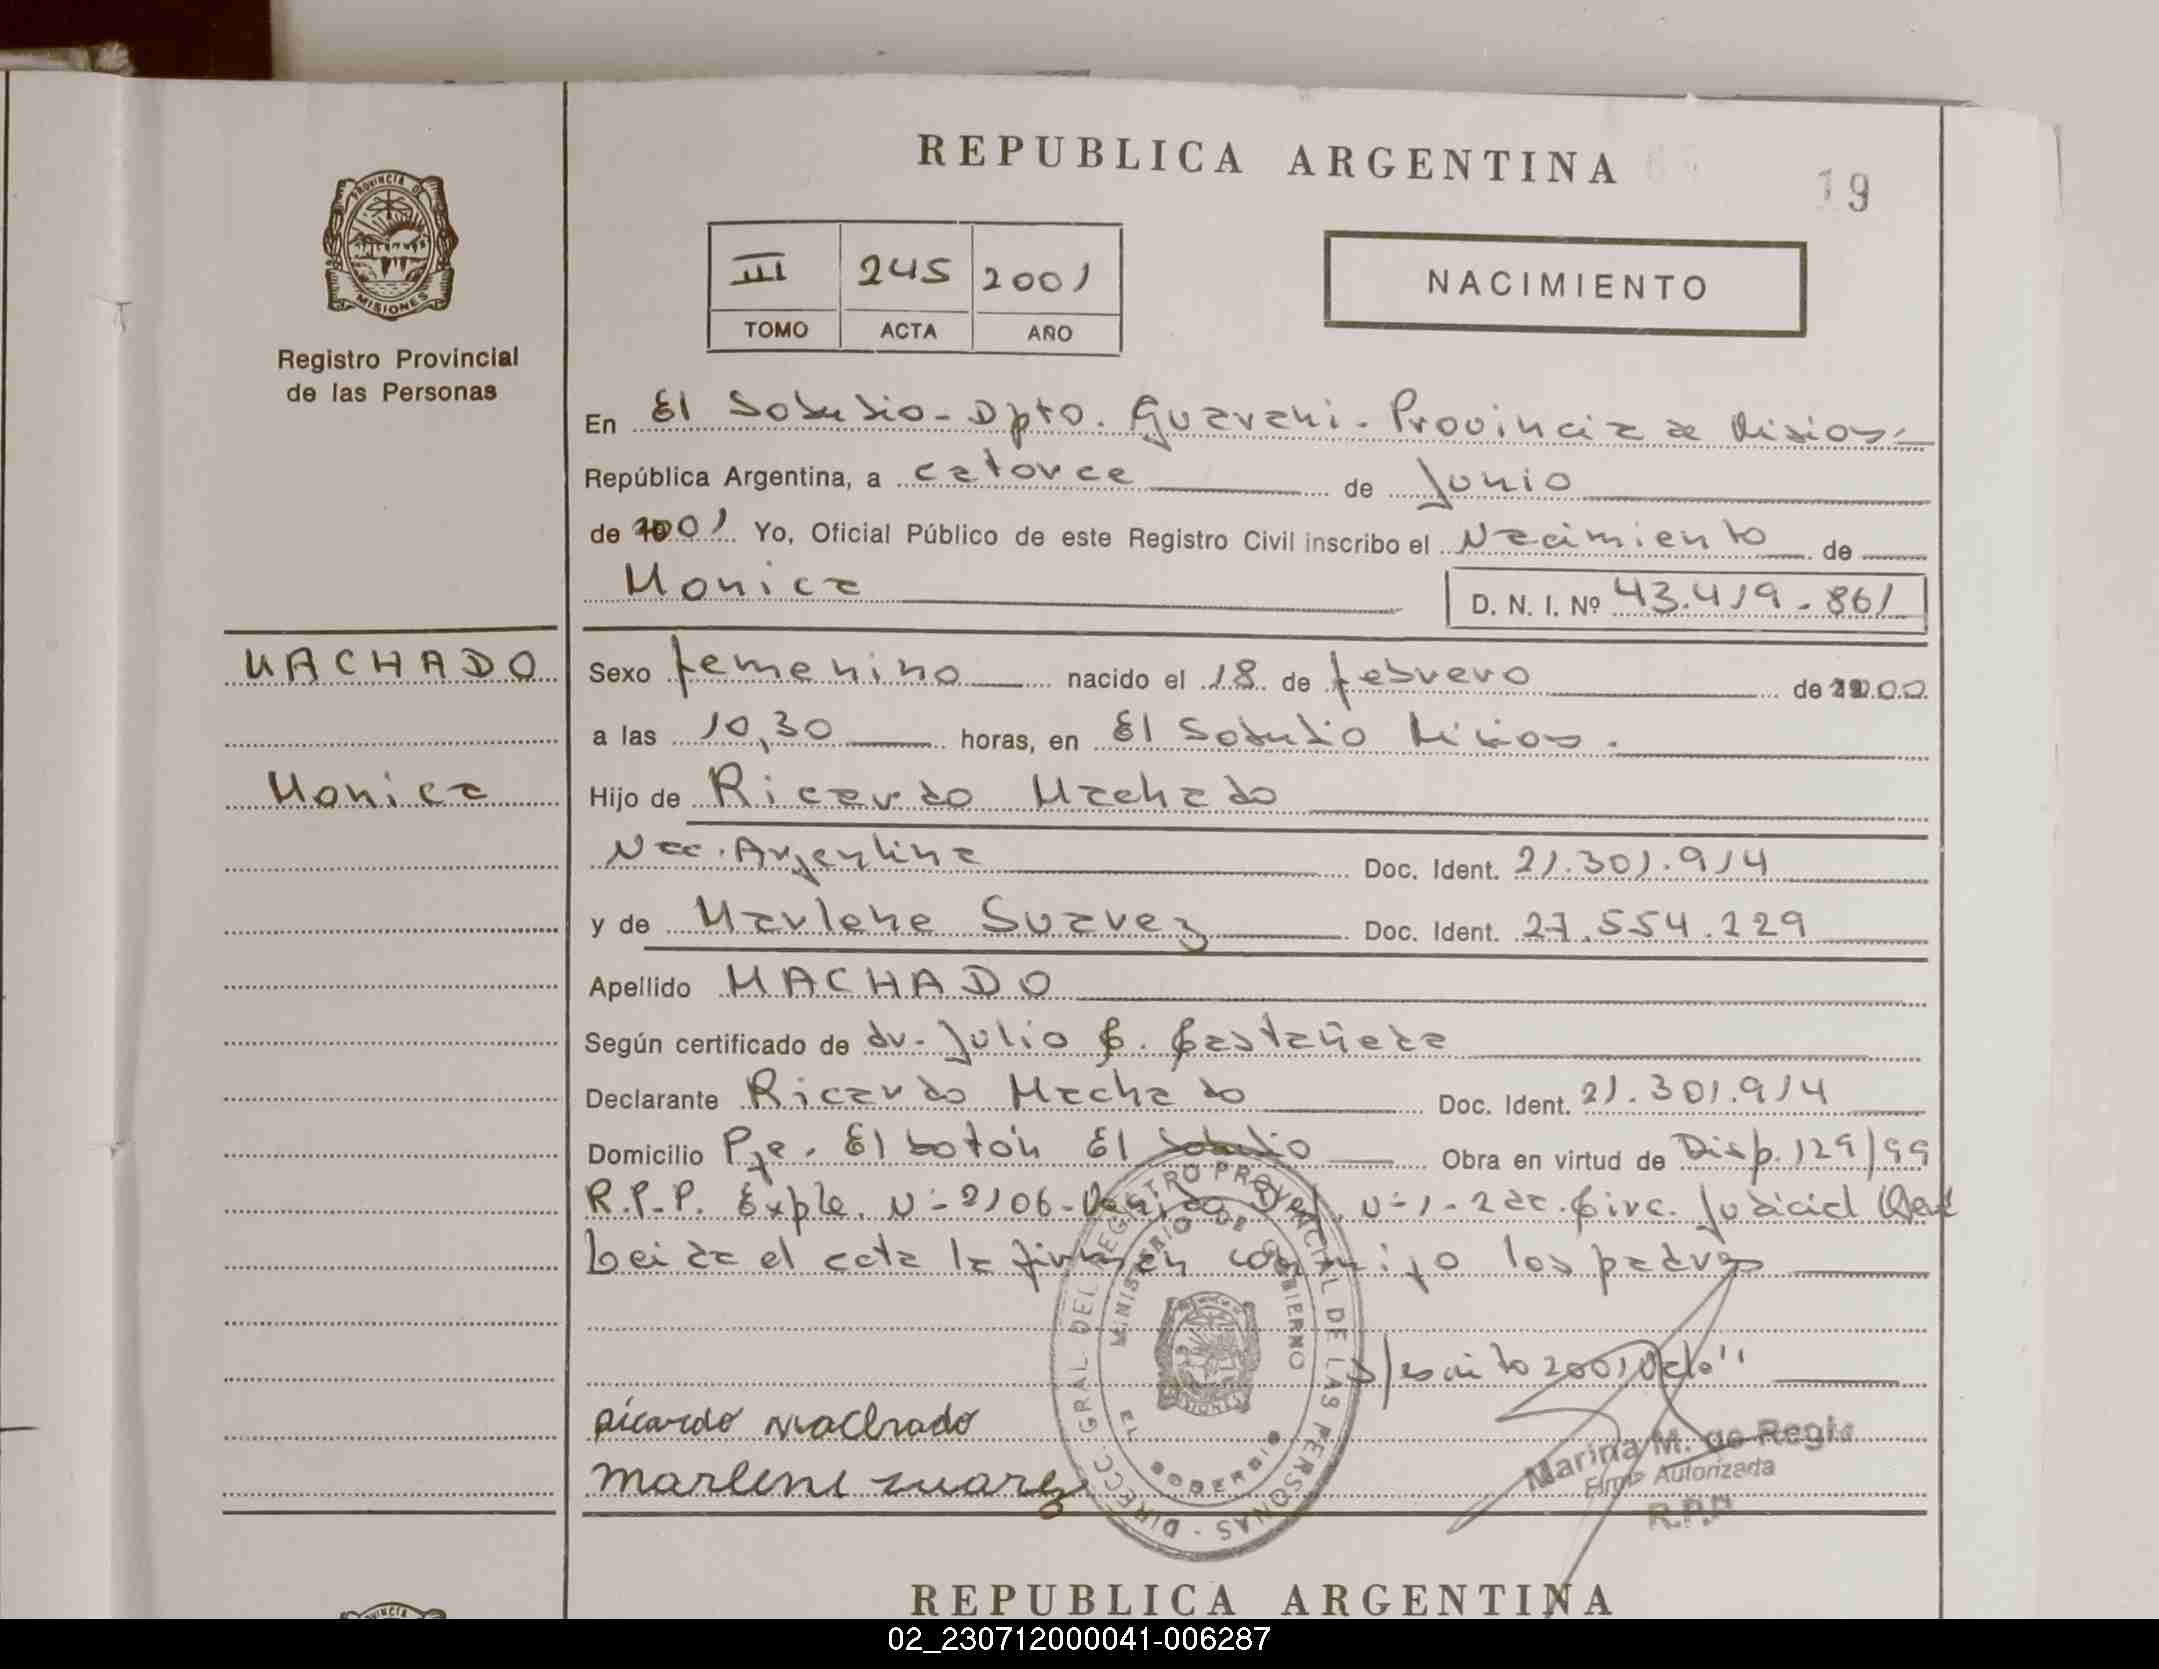 REPUBLICA ARGENTINA
19
PROVINCIA DE
MISIONES
Registro Provincial
de las Personas
III 245 2001
TOMO ACTA AÑO
NACIMIENTO
En El Soberbio - Dpto. Guarani - Provincia de Misiones
República Argentina, a catorce de Junio
de 2001 Yo, Oficial Público de este Registro Civil inscribo el Nacimiento de
Monica D. N. I. Nº 43.419.861
MACHADO
Monica
Sexo femenino nacido el 18 de febrero de 2000
a las 10,30 horas, en El Soberbio Misiones.
Hijo de Ricardo Machado
Nac. Argentina Doc. Ident. 21.301.914
y de Marlene Suarez Doc. Ident. 27.554.229
Apellido MACHADO
Según certificado de dr. Julio C. Castañeda
Declarante Ricardo Machado Doc. Ident. 21.301.914
Domicilio Pje. El botón El Soberbio Obra en virtud de Disp. 129/99
R.P.P. Expte. N= 2106- N=1- 2da. Circ. Judicial
Leida el acta la firman conmigo los padres
s/escrito 2001 Vale"
ricardo machado
marlene suarez
DIRECC. GRAL. DEL REGISTRO PROVINCIAL DE LAS PERSONAS
MINISTERIO DE GOBIERNO
EL SOBERBIO
Marina M. de Regis
Firma Autorizada
R.P.P.
REPUBLICA ARGENTINA
02_230712000041-006287